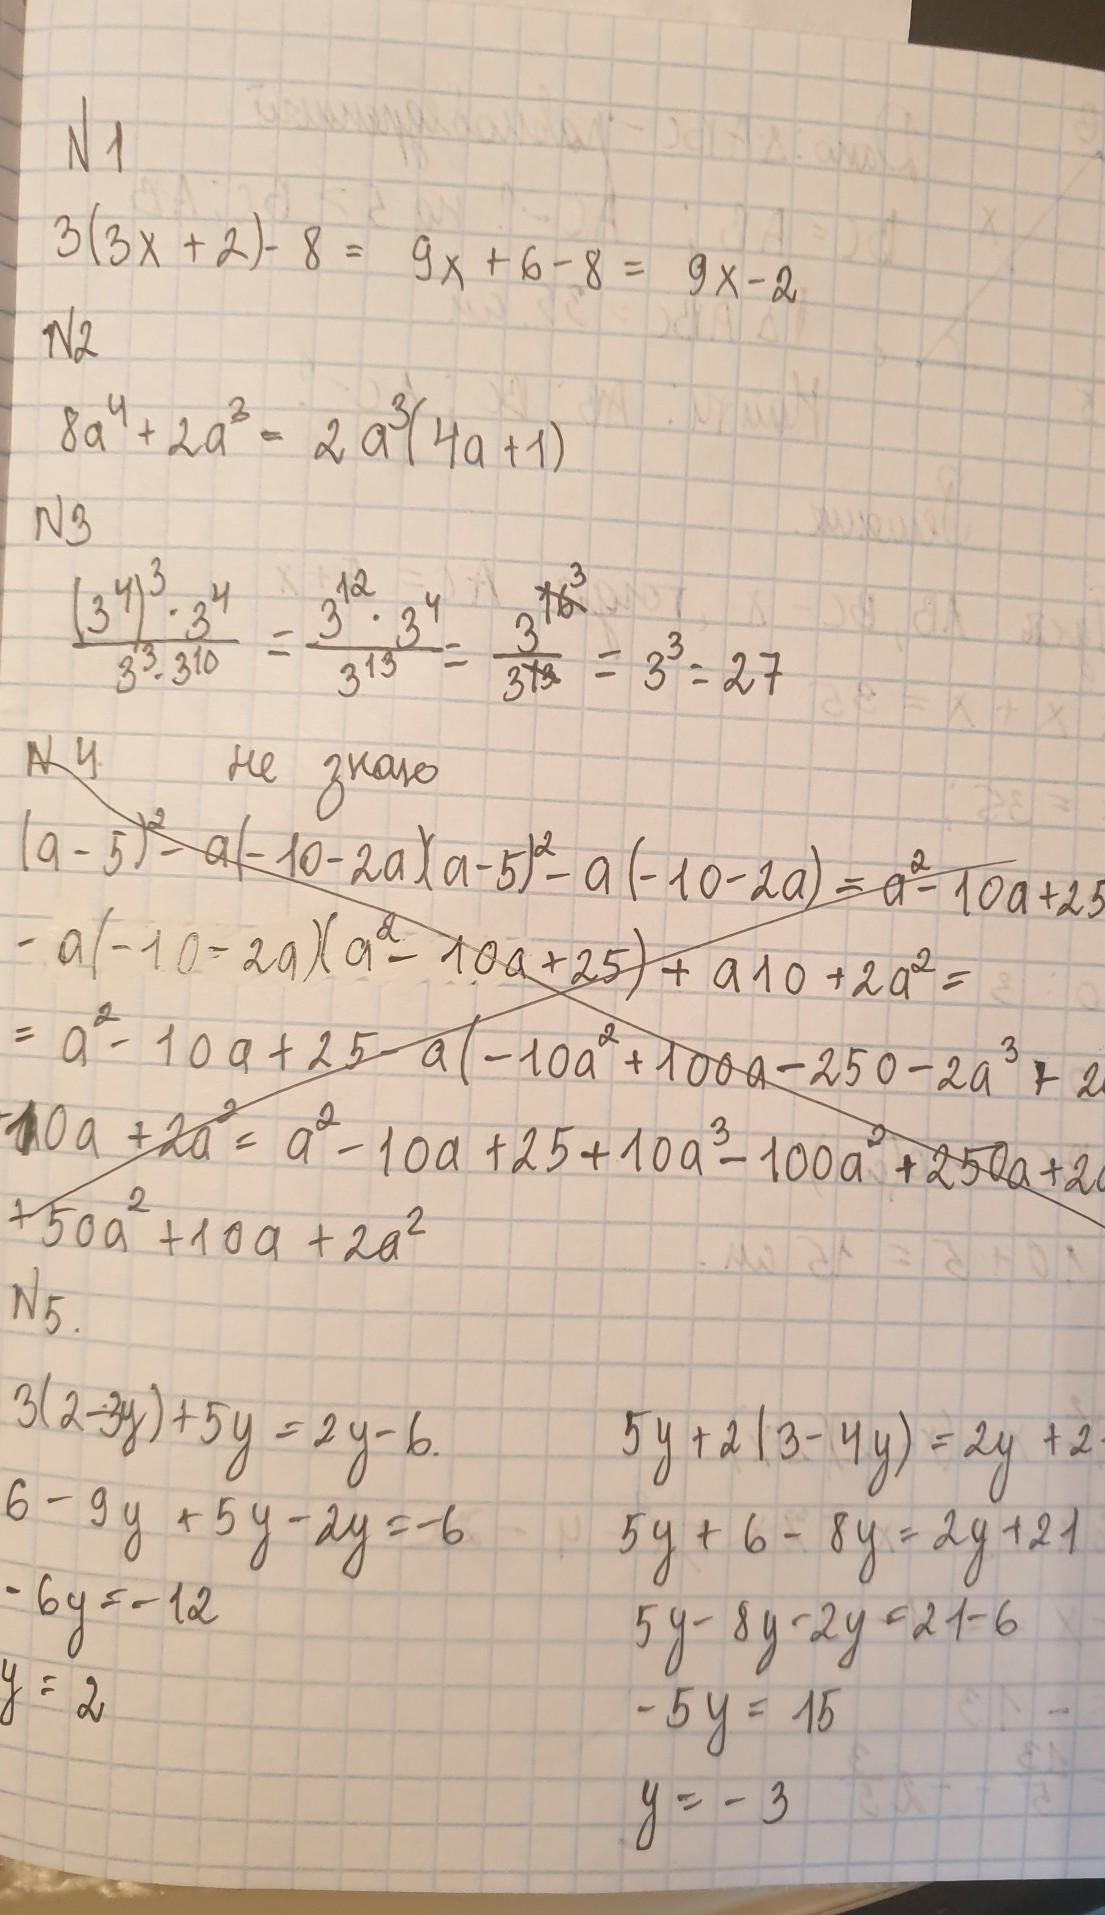 N1
3(3x + 2) - 8 = 9x + 6 - 8 = 9x - 2
N2
8a⁴ + 2a³ = 2a³(4a + 1)
N3
(3⁴)³ · 3⁴ / 3³ · 3¹⁰ = 3¹² · 3⁴ / 3¹³ = 3¹⁶ ³ / 3¹³ = 3³ = 27
N4 не знаю
(a - 5)² - a(-10 - 2a)(a - 5)² - a(-10 - 2a) = a² - 10a + 25
- a(-10 - 2a)(a² - 10a + 25) + a10 + 2a² =
= a² - 10a + 25 - a(-10a² + 100a - 250 - 2a³ + 2
10a + 2a² = a² - 10a + 25 + 10a³ - 100a² + 250a + 2a
+ 50a² + 10a + 2a²
N5.
3(2 - 3y) + 5y = 2y - 6.
6 - 9y + 5y - 2y = -6
- 6y = - 12
y = 2
5y + 2(3 - 4y) = 2y + 2
5y + 6 - 8y = 2y + 21
5y - 8y - 2y = 21 - 6
- 5y = 15
y = - 3